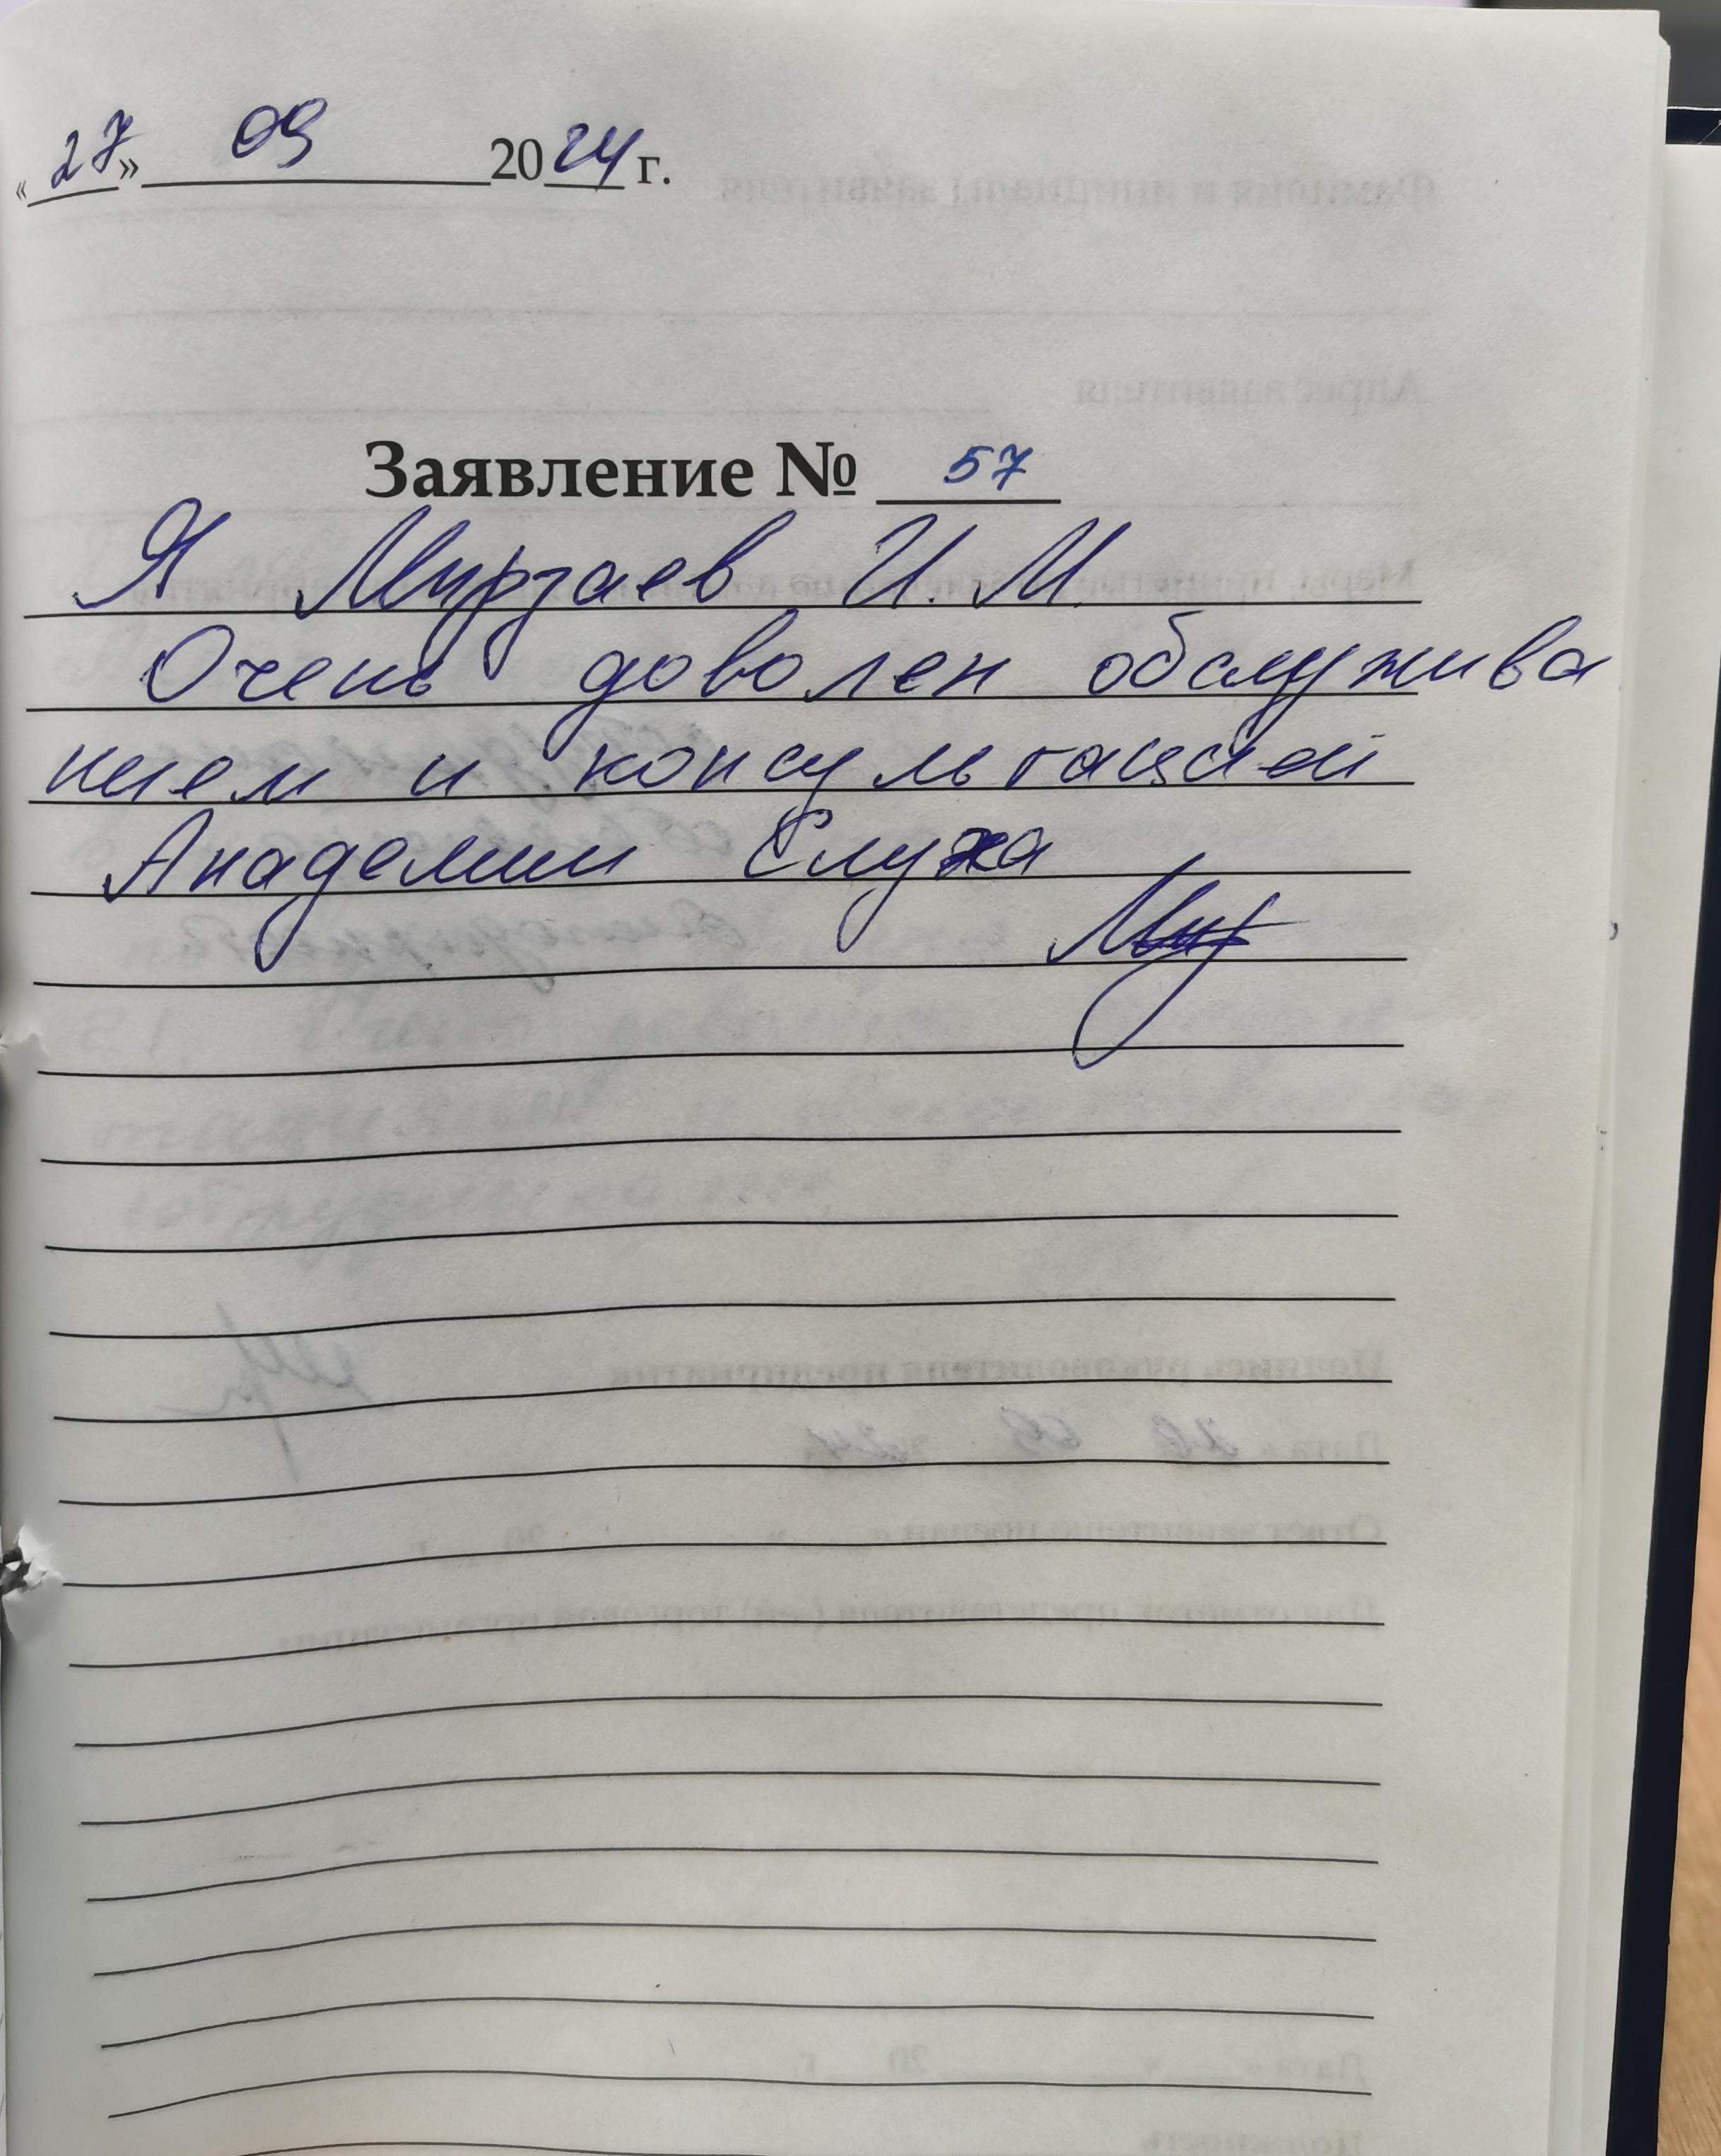 «27» 09 2024 г.
Заявление № 57
Я Мирзаев И. М.
Очень доволен обслужива
нием и консультацией
Академии Слуха